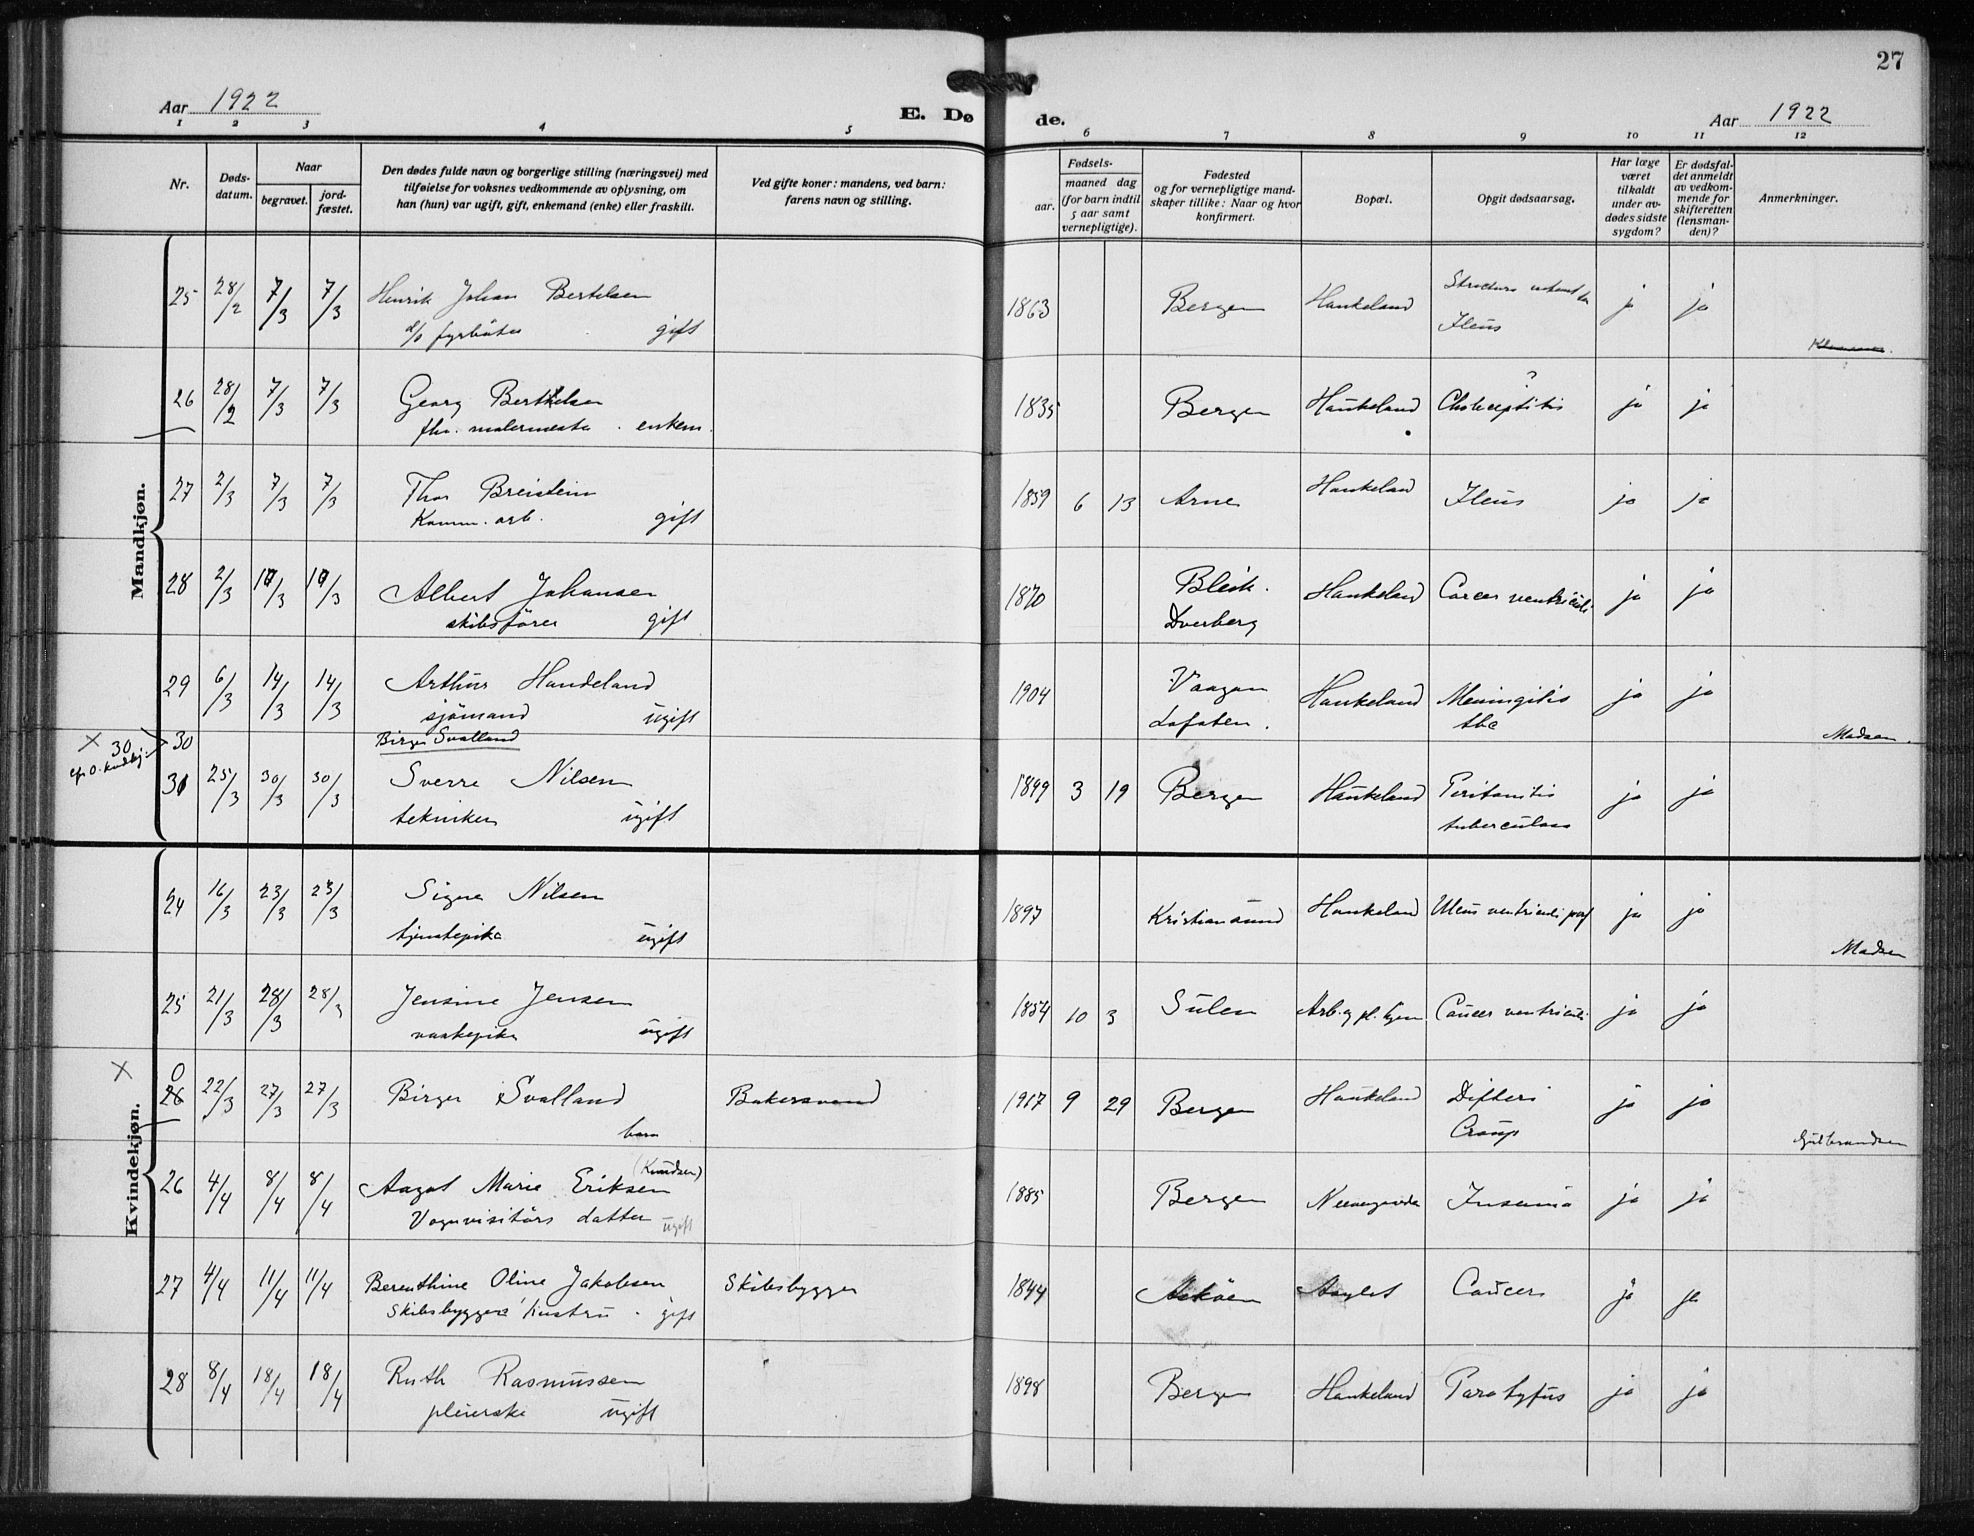 27
Aar 1922
E. Dø
de.
Aar 1922
1 2 3 4 5 6 7 8 9 10 11 12
Nr.
Døds-
datum.
Naar
begravet.
jord-
fæstet.
Den dødes fulde navn og borgerlige stilling (næringsvei) med
tilføielse for voksnes vedkommende av oplysning, om
han (hun) var ugift, gift, enkemand (enke) eller fraskilt.
Ved gifte koner: mandens, ved barn:
farens navn og stilling.
Fødsels-
aar.
maaned dag
(for barn indtil
5 aar samt
vernepligtige).
Fødested
og for vernepligtige mand-
skaper tillike: Naar og hvor
konfirmert.
Bopæl.
Opgit dødsaarsag.
Har læge
været
tilkaldt
under av-
dødes sidste
sygdom?
Er dødsfal-
det anmeldt
av vedkom-
mende for
skifteretten
(lensman-
den)?
Anmerkninger.
Mandkjøn.
25 28/2 7/3 7/3 Henrik Johan Bertelsen 1863 Bergen Haukeland ja ja
d/s fyrböter gift Ileus
26 28/2 7/3 7/3 Georg Berthelsen 1835 Bergen Haukeland ? ja ja
fhv. malermester . enkem.
27 2/3 7/3 7/3 Thor Breistein 1859 6 13 Arne Haukeland Ileus ja ja
Komm. arb. gift
28 2/3 10/3 10/3 Albert Johansen 1870 Bleik. Haukeland Cancer ventriculi ja ja
skibsförer gift Dverberg
29 6/3 14/3 14/3 Arthur Handeland 1904 Vaagan Haukeland Meningitis ja ja
sjömand ugift Lofoten. tbc
Madsen.
x 30 30 Birger Svalland
31 25/3 30/3 30/3 Sverre Nilsen 1899 3 19 Bergen Haukeland Peritonitis ja ja
tekniker ugift tuberculosa
Kvindekjøn.
24 16/3 23/3 23/3 Signe Nilsen 1897 Kristiansund Haukeland Ulcus ventriculi perf ja ja
tjenestepike ugift
Madsen
25 21/3 28/3 28/3 Jensine Jensen 1854 10 3 Sulen Arb. og pl. hjem Cancer ventriculi ja ja
vaskepike ugift
x 0
26 22/3 27/3 27/3 Birger Svalland Bakersvend 1917 9 29 Bergen Haukeland Difteri ja ja
barn Croup
Gulbrandsen
26 4/4 8/4 8/4 Aagot Marie Eriksen (Knudsen) 1885 Bergen Neevengaarden Insania ja ja
Vognvisitörs datter ugift
27 4/4 11/4 11/4 Berenthine Oline Jakobsen Skibsbygger 1844 Asköen Asylet Cancer ja ja
Skibsbyggers hustru . gift
28 8/4 18/4 18/4 Ruth Rasmussen 1898 Bergen Haukeland Paratyfus ja ja
pleierske ugift